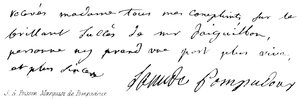 recevés madame tous mes complimts sur le
brillant succès de mr daiguillon,
personne ny prend une part plus vive,
et plus sincere
Pompadour
J. A. Poisson Marquise de Pompadour